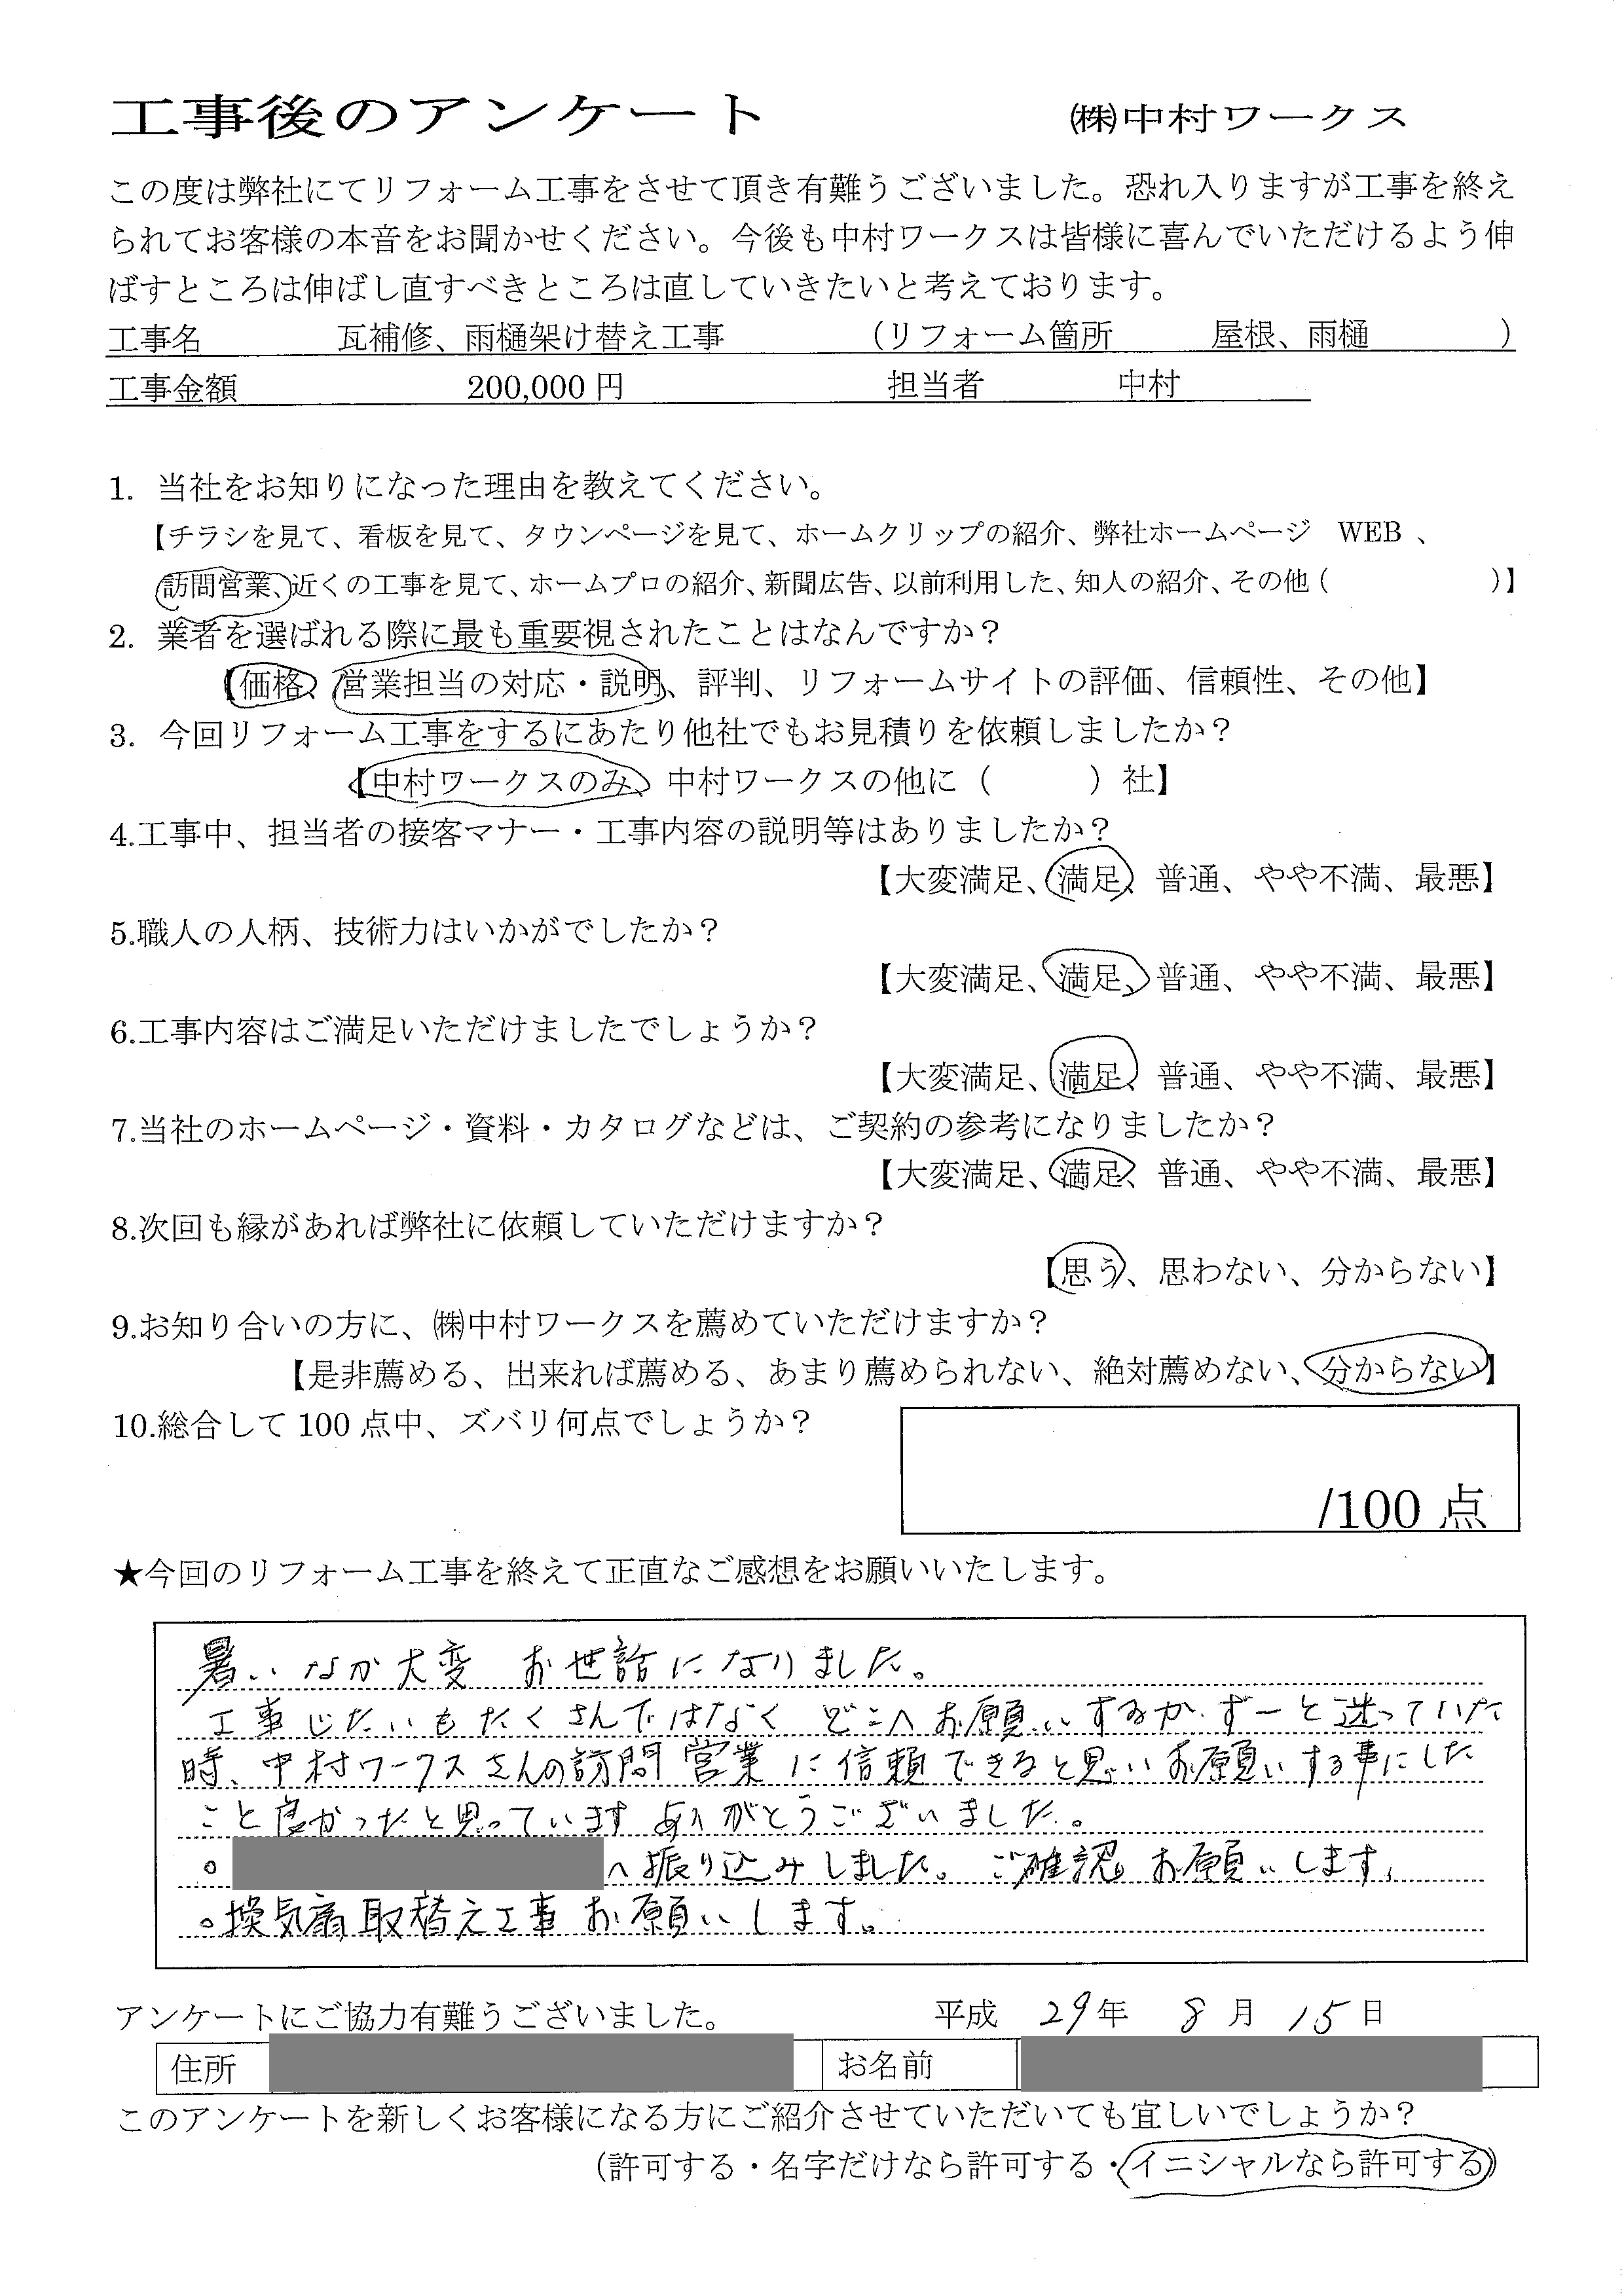 工事後のアンケート ㈱中村ワークス
この度は弊社にてリフォーム工事をさせて頂き有難うございました。恐れ入りますが工事を終え
られてお客様の本音をお聞かせください。今後も中村ワークスは皆様に喜んでいただけるよう伸
ばすところは伸ばし直すべきところは直していきたいと考えております。
工事名 瓦補修、雨樋架け替え工事 （リフォーム箇所 屋根、雨樋 ）
工事金額 200,000 円 担当者 中村
1. 当社をお知りになった理由を教えてください。
【チラシを見て、看板を見て、タウンページを見て、ホームクリップの紹介、弊社ホームページ WEB 、
訪問営業、近くの工事を見て、ホームプロの紹介、新聞広告、以前利用した、知人の紹介、その他（ ）】
2. 業者を選ばれる際に最も重要視されたことはなんですか？
【価格、営業担当の対応・説明、評判、リフォームサイトの評価、信頼性、その他】
3. 今回リフォーム工事をするにあたり他社でもお見積りを依頼しましたか？
【中村ワークスのみ、中村ワークスの他に（ ）社】
4.工事中、担当者の接客マナー・工事内容の説明等はありましたか？
【大変満足、満足、普通、やや不満、最悪】
5.職人の人柄、技術力はいかがでしたか？
【大変満足、満足、普通、やや不満、最悪】
6.工事内容はご満足いただけましたでしょうか？
【大変満足、満足、普通、やや不満、最悪】
7.当社のホームページ・資料・カタログなどは、ご契約の参考になりましたか？
【大変満足、満足、普通、やや不満、最悪】
8.次回も縁があれば弊社に依頼していただけますか？
【思う、思わない、分からない】
9.お知り合いの方に、㈱中村ワークスを薦めていただけますか？
【是非薦める、出来れば薦める、あまり薦められない、絶対薦めない、分からない】
10.総合して 100 点中、ズバリ何点でしょうか？
/100 点
★今回のリフォーム工事を終えて正直なご感想をお願いいたします。
暑いなか大変 お世話になりました。
工事じたいもたくさんではなく どこへお願いするか ずーと迷っていた
時、中村ワークスさんの訪問営業に信頼できると思いお願いする事にした
こと良かったと思っています ありがとうございました。
。 へ振り込みしました。ご確認お願いします。
。換気扇取替え工事 お願いします。
アンケートにご協力有難うございました。 平成 29年 8月 15日
住所 お名前
このアンケートを新しくお客様になる方にご紹介させていただいても宜しいでしょうか？
（許可する・名字だけなら許可する・イニシャルなら許可する）